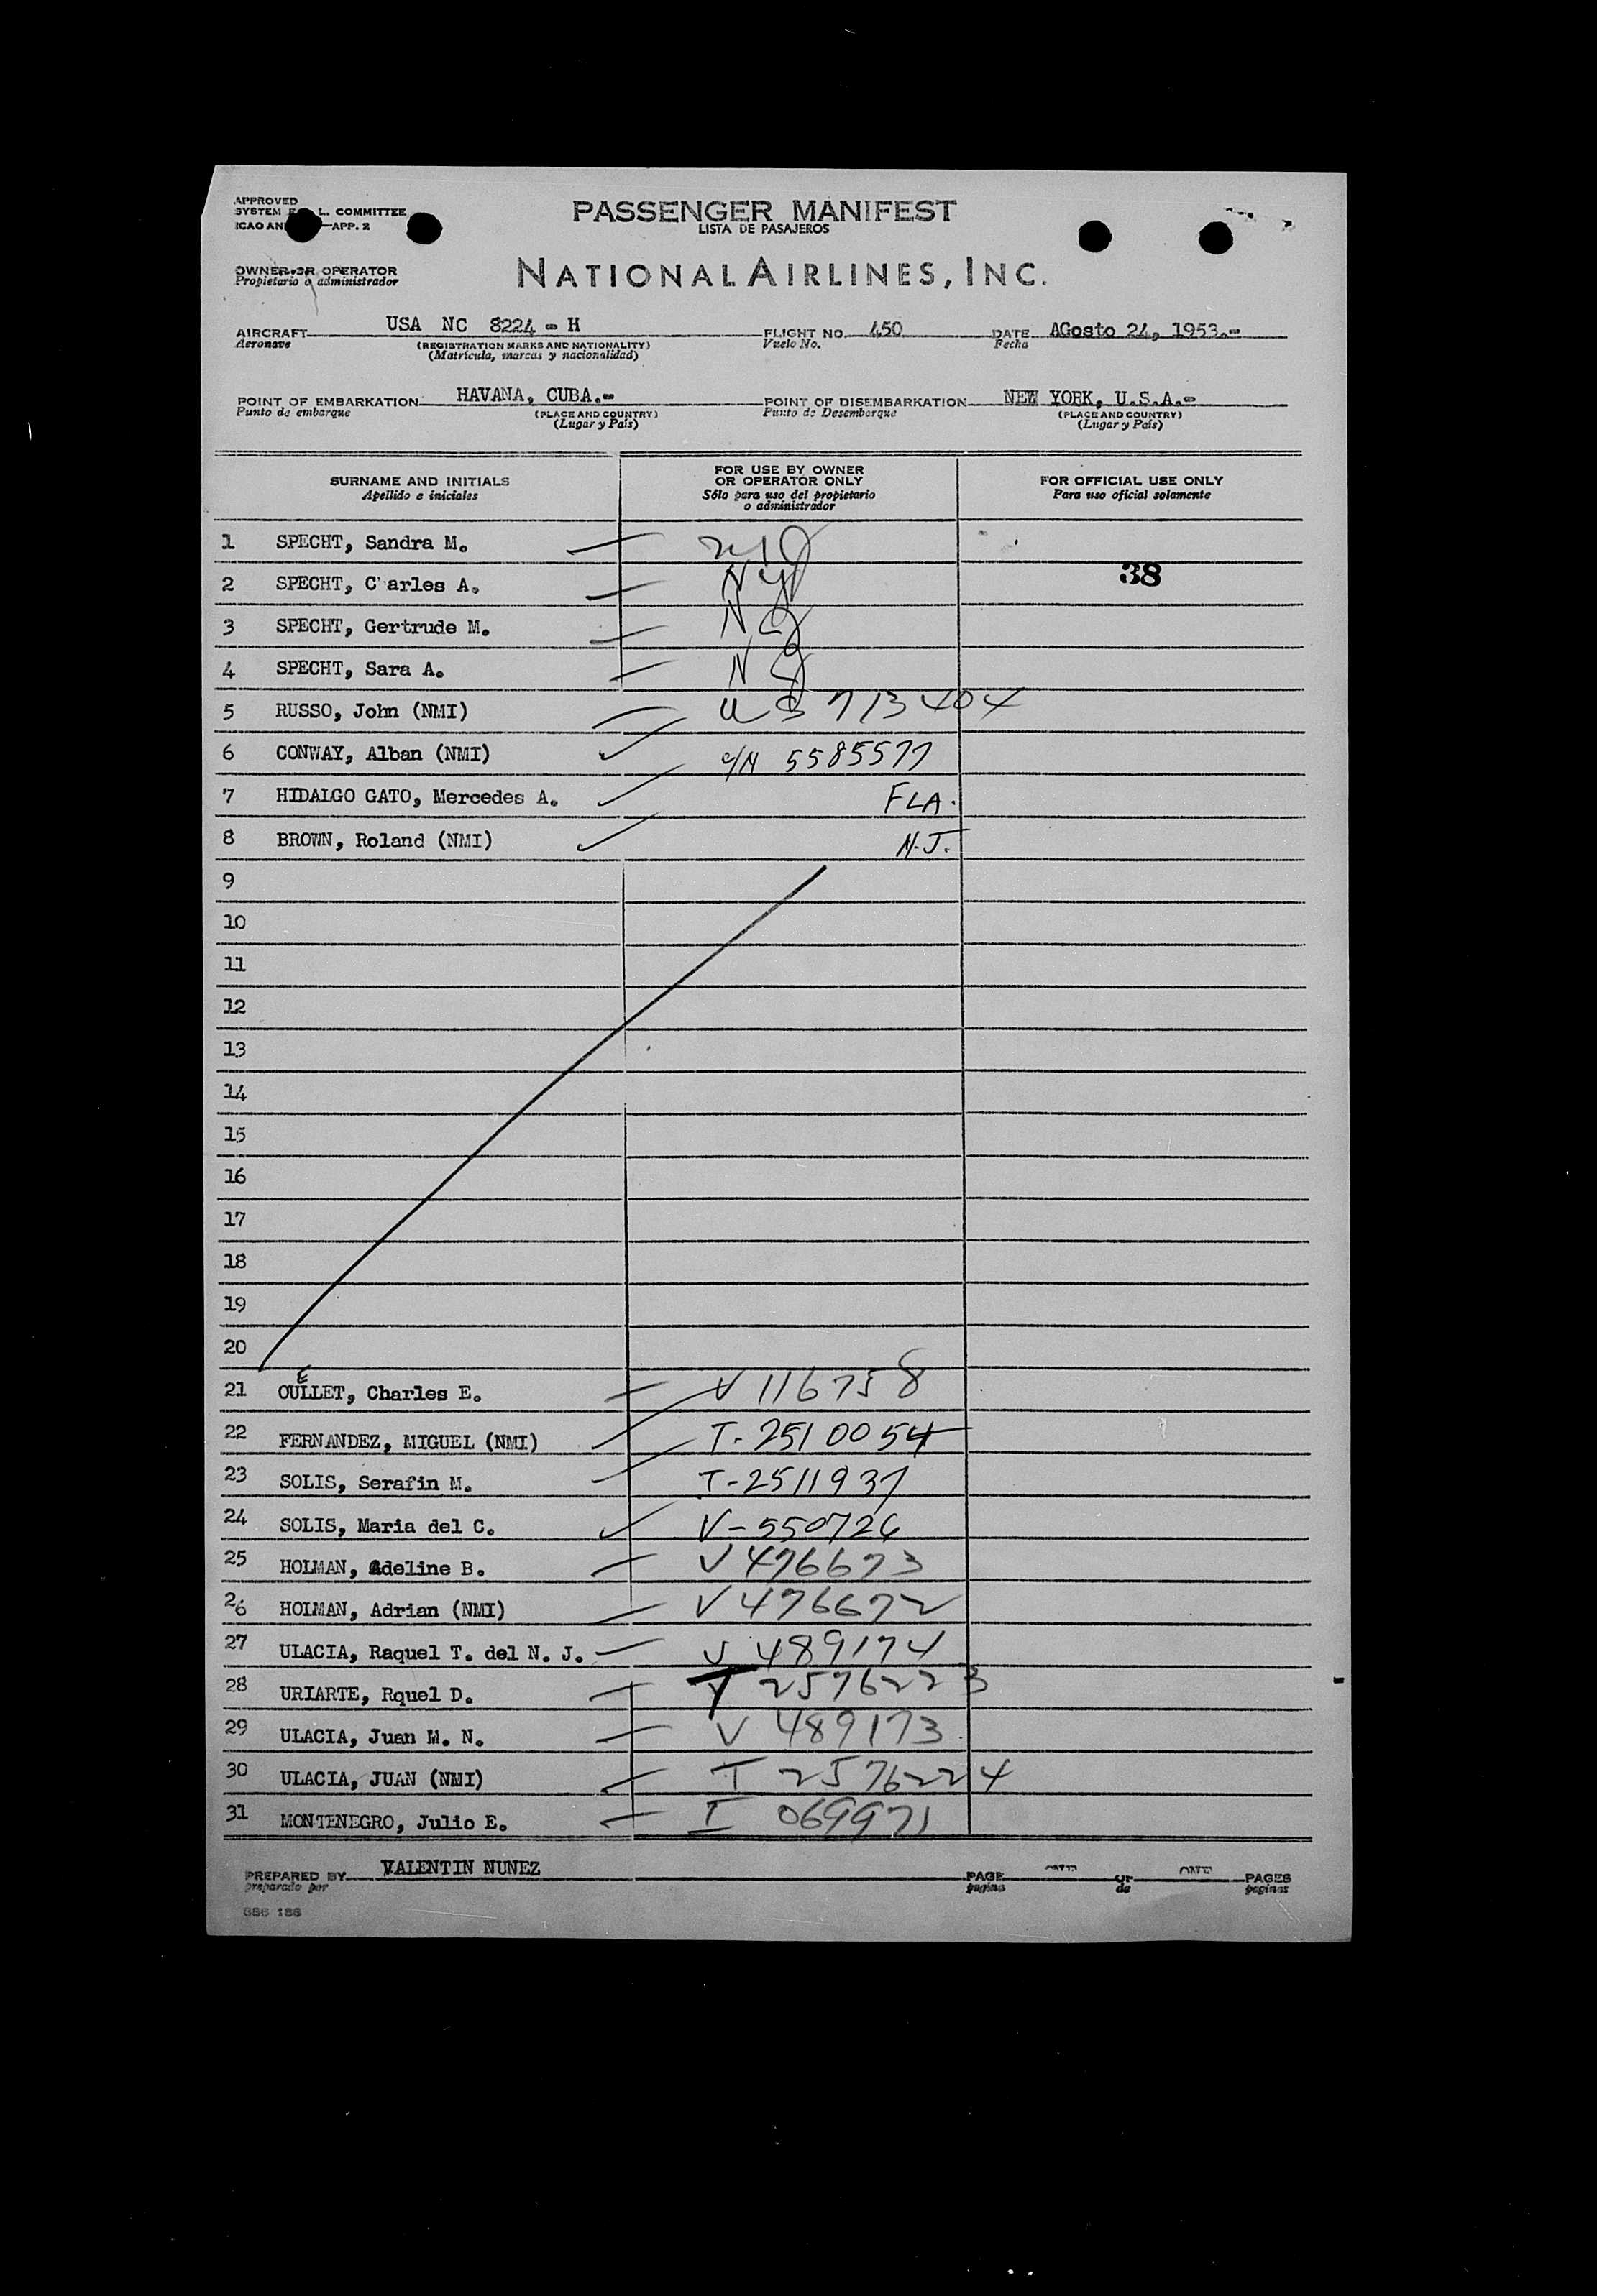 APPROVED
SYSTEM L. COMMITTEE
ICAO APP. 2
PASSENGER MANIFEST
LISTA DE PASAJEROS
OWNER OR OPERATOR
Propietario o administrador
NATIONAL AIRLINES, INC.
AIRCRAFT USA NC 8224 - H FLIGHT NO. 450 DATE AGosto 24, 1953.-
Aeronave (REGISTRATION MARKS AND NATIONALITY) Vuelo No. Fecha
(Matrícula, marcas y nacionalidad)
POINT OF EMBARKATION HAVANA, CUBA.- POINT OF DISEMBARKATION NEW YORK, U.S.A.-
Punto de embarque (PLACE AND COUNTRY) Punto de Desembarque (PLACE AND COUNTRY)
(Lugar y País) (Lugar y País)
SURNAME AND INITIALS
Apellido e iniciales
FOR USE BY OWNER
OR OPERATOR ONLY
Sólo para uso del propietario
o administrador
FOR OFFICIAL USE ONLY
Para uso oficial solamente
1 SPECHT, Sandra M.
2 SPECHT, C arles A. 38
3 SPECHT, Gertrude M.
4 SPECHT, Sara A.
5 RUSSO, John (NMI) US 713404
6 CONWAY, Alban (NMI) c/N 5585577
7 HIDALGO GATO, Mercedes A. FLA.
8 BROWN, Roland (NMI) N.J.
9
10
11
12
13
14
15
16
17
18
19
20
21 OUELLET, Charles E. V 116758
22 FERNANDEZ, MIGUEL (NMI) T-2510054
23 SOLIS, Serafin M. T-2511937
24 SOLIS, Maria del C. V-550726
25 HOLMAN, Adeline B. V 476673
26 HOLMAN, Adrian (NMI) V 476672
27 ULACIA, Raquel T. del N. J. V 489174
28 URIARTE, Rquel D. T 2576223
29 ULACIA, Juan M. N. V 489173
30 ULACIA, JUAN (NMI) T 2576224
31 MONTENEGRO, Julio E. I 069971
PREPARED BY VALENTIN NUNEZ PAGE OF ONE PAGES
preparado por pagina de paginas